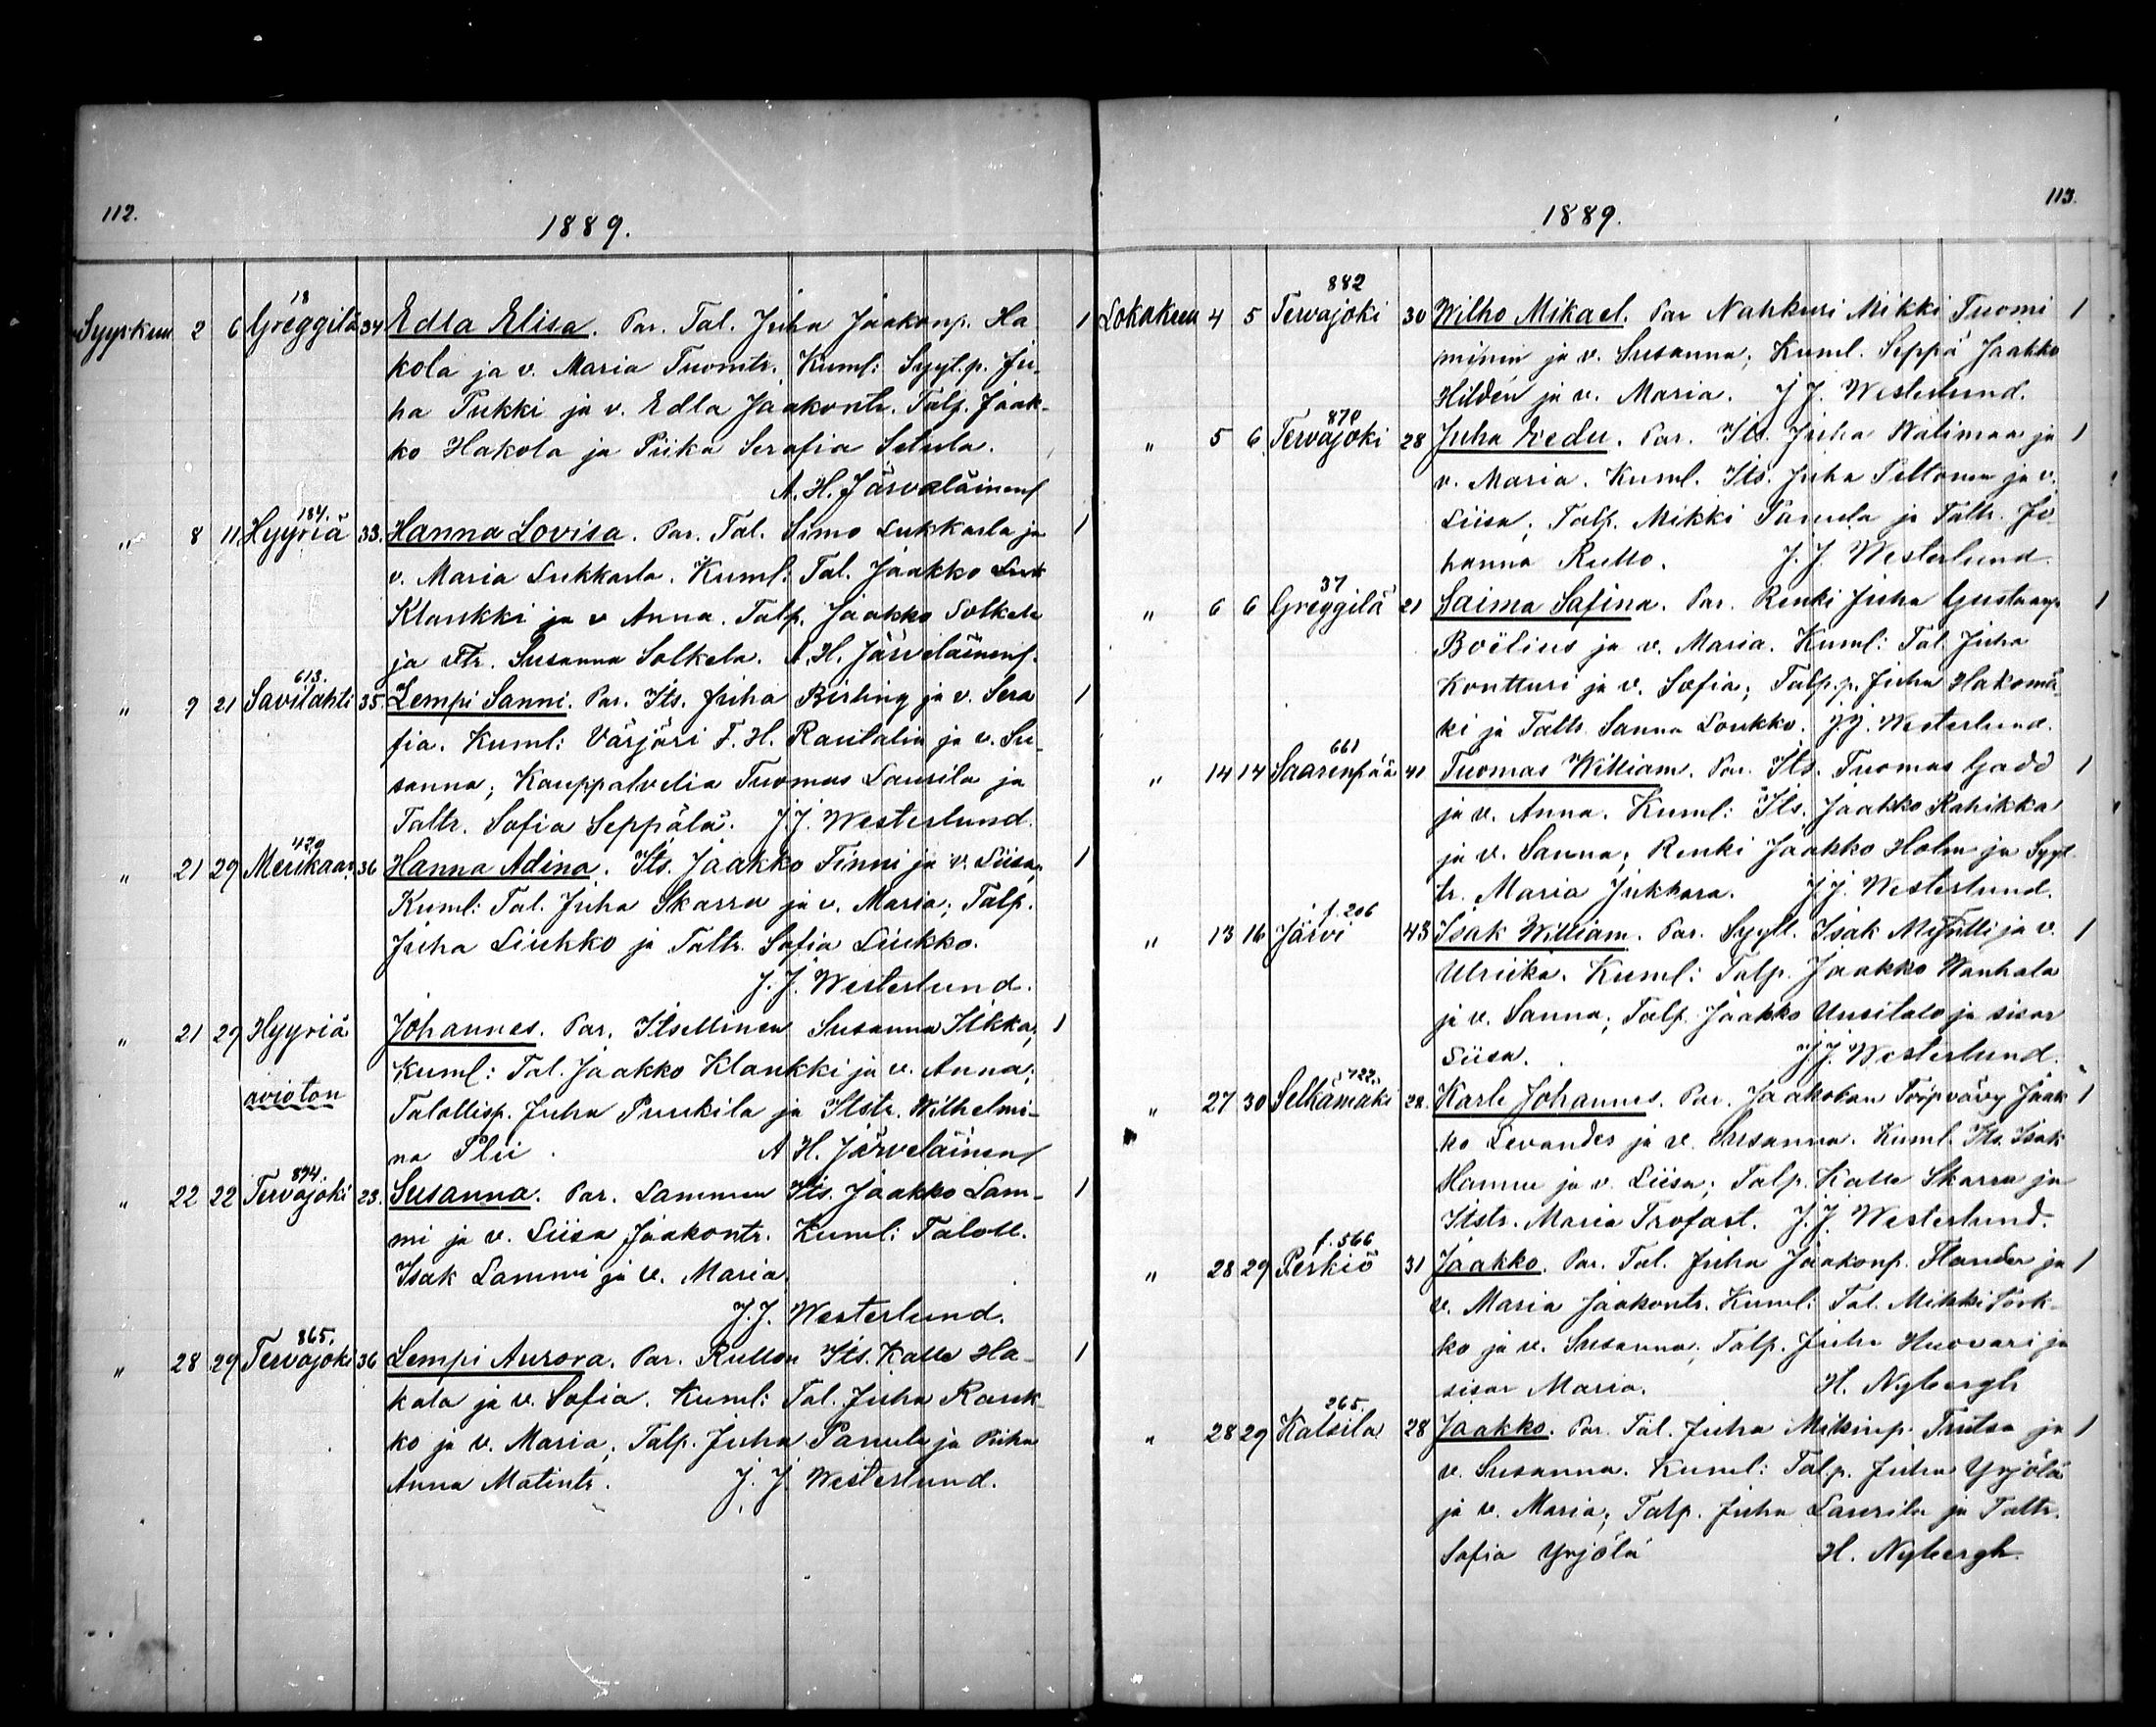 112.
1889.
18
Syyskuu 2 6 Greggilä 34 Edla Elisa. Par. Tal. Juha Jaakonp. Ha 1
kola ja v. Maria Tuomtr. Kuml: Syyt.p. Ju-
ha Pukki ja v. Edla Jaakontr. Talp. Jaak-
ko Hakola ja Piika Serafia Setula.
A. H. Järveläinen
184.
" 8 11 Hyyriä 33. Hanna Lovisa. Par. Tal. Simo Lukkarla ja 1
v. Maria Lukkarla. Kuml: Tal. Jaakko
Klankki ja v Anna. Talp. Jaakko Solkela
ja Ttr. Susanna Solkela. A. H. Järveläinen.
613.
" 9 21 Savilahti 35 Lempi Sanni. Par. Its. Juha Birling ja v. Sera 1
fia. Kuml: Värjäri F. H. Rautalin ja v. Su-
sanna; Kauppalvelia Tuomas Laurila ja
Taltr. Sofia Seppälä. J. J. Westerlund.
429
" 21 29 Merikaar. 36 Hanna Adina. Its. Jaakko Finni ja v. Liisa; 1
Kuml: Tal. Juha Skarra ja v. Maria; Talp.
Juha Liukko ja Taltr. Sofia Liukko.
J. J. Westerlund.
" 21 29 Hyyriä Johannes. Par. Itsellinen Susanna Ilkka; 1
Kuml: Tal. Jaakko Klankki ja v. Anna;
avioton
Talollisp. Juha Puukila ja Itstr. Wilhelmi-
na Plii. A H. Järveläinen
894.
" 22 22 Tervajoki 23. Susanna. Par. Lammin Its. Jaakko Lam- 1
mi ja v. Liisa Jaakontr. Kuml: Taloll.
Isak Lammi ja v. Maria.
J. J. Westerlund.
865.
" 28 29 Tervajoki 36 Lempi Aurora. Par. Rullon Its. Kalle Ha- 1
kala ja v. Sofia. Kuml: Tal. Juha Rauk-
ko ja v. Maria; Talp. Juha Panula ja Piika
Anna Matintr. J. J. Westerlund.
113.
1889.
882
Lokakuu 4 5 Tervajoki 30 Wilho Mikael. Par Nahkuri Mikki Tuomi 1
minen ja v. Susanna; Kuml. Seppä Jaakko
Hilden ja v. Maria. J J. Westerlund.
870
" 5 6 Tervajoki 28 Juha Eedu. Par. Its. Juha Wälimaa ja 1
v. Maria. Kuml. Its. Juha Peltonen ja v.
Liisa; Talp. Mikki Panula ja Taltr. Jo
hanna Rullo. J. J. Westerlund.
37
" 6 6 Greggilä 21 Saima Safina. Par. Renki Juha Gustaanp 1
Boëlius ja v. Maria. Kuml: Tal. Juha
Kontturi ja v. Sofia; Talp.p. Juha Hakomä-
ki ja Taltr. Sanna Loukko. J J. Westerlund.
661
" 14 14 Saarenpää 41 Tuomas William. Par. Its. Tuomas Gadd 1
ja v. Anna. Kuml: Its. Jaakko Rahikka
ja v. Sanna; Renki Jaakko Holm ja Syyt.
tr. Maria Jukkara. J J. Westerlund.
f. 206
" 13 16 Järvi 43 Isak William. Par. Syytl. Isak ja v. 1
Ulriika. Kuml: Talp. Jaakko Wanhala
ja v. Sanna; Talp. Jaakko Uusitalo ja sisar
Liisa. J. J. Westerlund.
722.
" 27 30 Selkämäki 28. Karle Johannes. Par. Jaakolan Torpvävy Jaak 1
ko Levander ja v. Susanna. Kuml. Its. Isak
Hannu ja v. Liisa; Talp. Kalle Skarra ja
Itstr. Maria Trofast. J. J. Westerlund.
f. 566
" 28 29 Perkiö 31 Jaakko. Par. Tal. Juha Jaakonp. Flander ja 1
v. Maria Jaakontr. Kuml: Tal. Mikki Jörk-
ko ja v. Susanna; Talp. Juha Huovari ja
sisar Maria. H. Nybergh
265.
" 28 29 Katsila 28 Jaakko. Par. Tal. Juha Mikinp. Trutsa ja 1
v. Susanna. Kuml: Tal.p. Juha Yrjölä
ja v. Maria; Talp. Juha Laurila ja Taltr.
Sofia Yrjölä H. Nybergh.